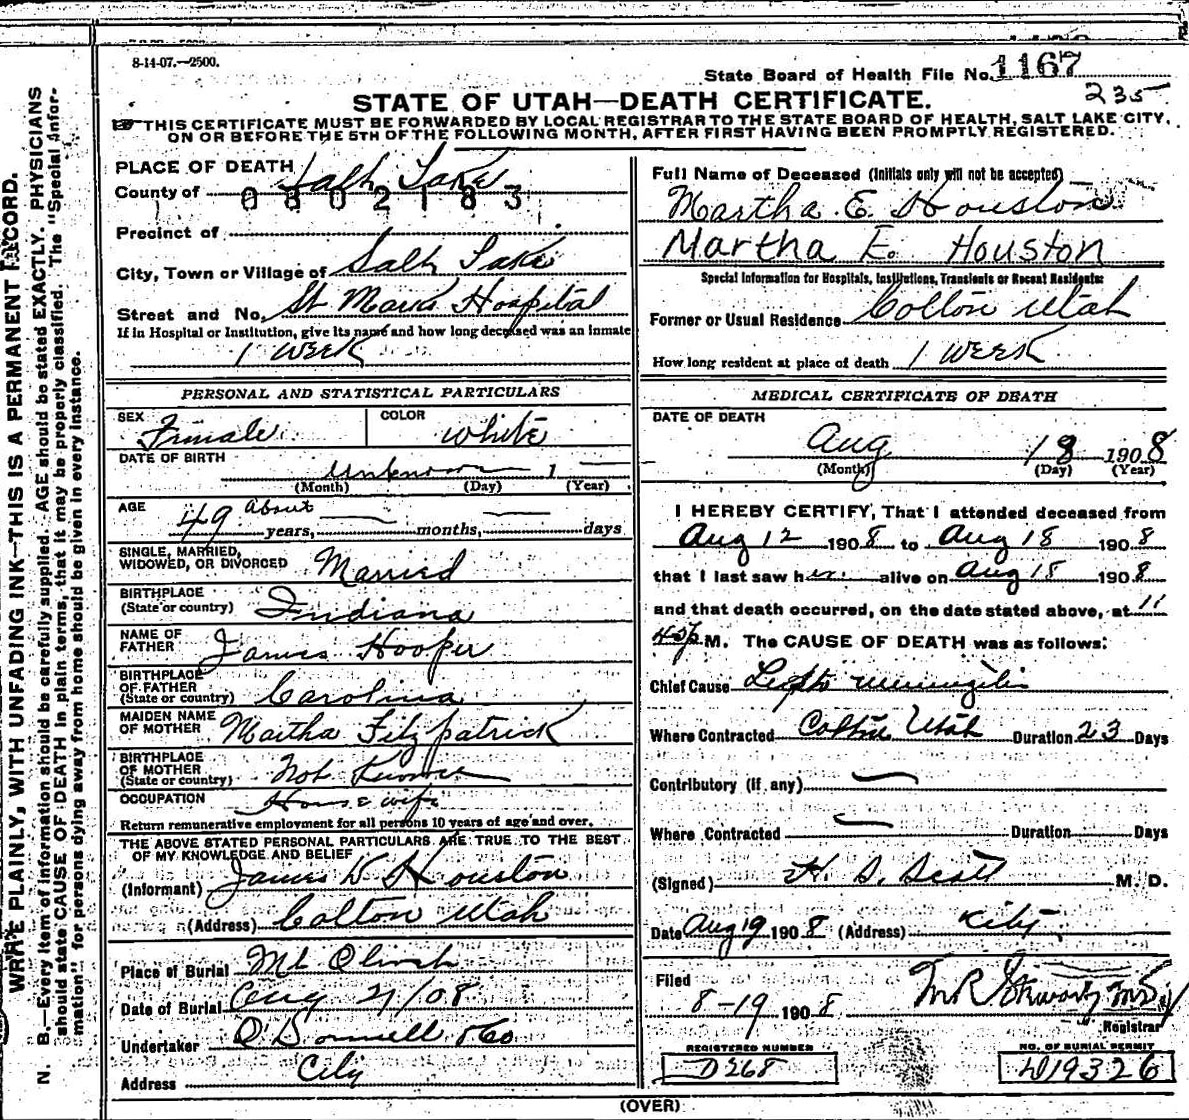 8-14-07.—2500.
State Board of Health File No. 1167
235
STATE OF UTAH—DEATH CERTIFICATE.
THIS CERTIFICATE MUST BE FORWARDED BY LOCAL REGISTRAR TO THE STATE BOARD OF HEALTH, SALT LAKE CITY,
ON OR BEFORE THE 5TH OF THE FOLLOWING MONTH, AFTER FIRST HAVING BEEN PROMPTLY REGISTERED.
WRITE PLAINLY, WITH UNFADING INK—THIS IS A PERMANENT RECORD.
N. B.—Every item of information should be carefully supplied. AGE should be stated EXACTLY. PHYSICIANS
should state CAUSE OF DEATH in plain terms, that it may be properly classified. The "Special Infor-
mation" for persons dying away from home should be given in every instance.
PLACE OF DEATH
County of Salt Lake
0802183
Precinct of
City, Town or Village of Salt Lake
Street and No. St Marks Hospital
If in Hospital or Institution, give its name and how long deceased was an inmate
1 WEEK
PERSONAL AND STATISTICAL PARTICULARS
SEX Female COLOR White
DATE OF BIRTH
Unknown 1
(Month) (Day) (Year)
AGE About
49 years, months, days
SINGLE, MARRIED,
WIDOWED, OR DIVORCED Married
BIRTHPLACE
(State or country) Indiana
NAME OF
FATHER James Hooper
BIRTHPLACE
OF FATHER
(State or country) Carolina
MAIDEN NAME
OF MOTHER Martha Fitzpatrick
BIRTHPLACE
OF MOTHER
(State or country) Not Known
OCCUPATION House wife
Return remunerative employment for all persons 10 years of age and over.
THE ABOVE STATED PERSONAL PARTICULARS ARE TRUE TO THE BEST
OF MY KNOWLEDGE AND BELIEF
(Informant) James D Houston
(Address) Colton Utah
Place of Burial Mt Olivet
Date of Burial Aug 21/08
Undertaker O'Donnell & Co
Address City
Full Name of Deceased (Initials only will not be accepted)
Martha E. Houston
Martha E. Houston
Special Information for Hospitals, Institutions, Transients or Recent Residents:
Former or Usual Residence Colton Utah
How long resident at place of death 1 WEEK
MEDICAL CERTIFICATE OF DEATH
DATE OF DEATH
Aug 18 1908
(Month) (Day) (Year)
I HEREBY CERTIFY, That I attended deceased from
Aug 12 1908 to Aug 18 1908
that I last saw her alive on Aug 18 1908
and that death occurred, on the date stated above, at 11
45 p M. The CAUSE OF DEATH was as follows:
Chief Cause Lepto meningitis
Where Contracted Colton Utah Duration 23 Days
Contributory (if any)
Where Contracted Duration Days
(Signed) H. S. Scott M. D.
Date Aug 19 1908 (Address) City
Filed
8-19 1908 Stewart
Registrar
REGISTERED NUMBER
D268
NO. OF BURIAL PERMIT
D19326
(OVER)